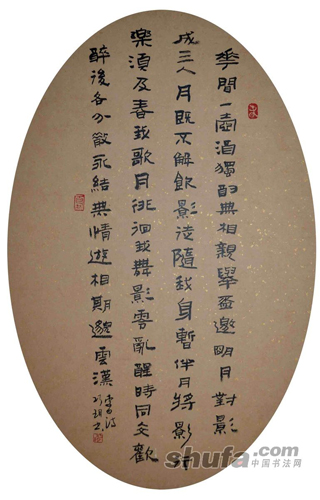 華間一壺酒獨酌無相親舉盃邀明月對影
成三人月既不解飲影徒隨我身暫伴月將影行
樂須及春我歌月徘徊我舞影零亂醒時同交歡
醉後各分散永結無情遊相期邈雲漢
李白詩
shufa.com
中国书法网